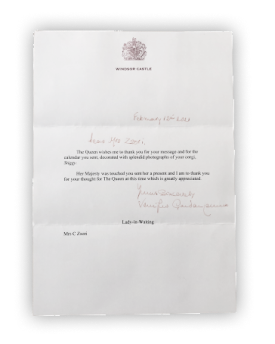 WINDSOR CASTLE
Dear Mrs
The Queen wishes me to thank you for your message and for the
calendar you sent, decorated with splendid photographs of your corgi,
Her Majesty was touched you sent her a present and I am to thank you
for your thought for The Queen at this time which is greatly appreciated.
Lady-in-Waiting
Mrs C